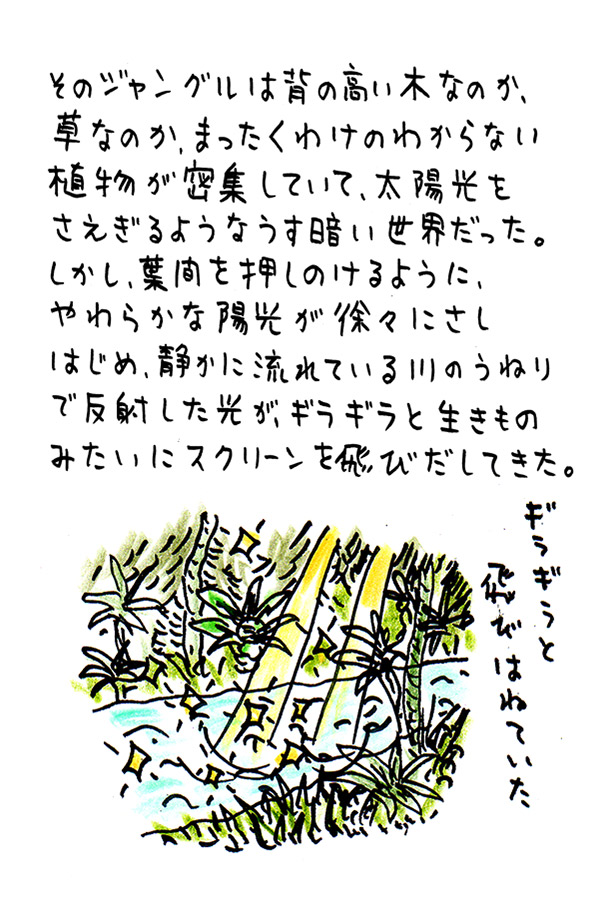 そのジャングルは背の高い木なのか、
草なのか、まったくわけのわからない
植物が密集していて、太陽光を
さえぎるようなうす暗い世界だった。
しかし、葉間を押しのけるように、
やわらかな陽光が徐々にさし
はじめ、静かに流れている川のうねり
で反射した光が、ギラギラと生きもの
みたいにスクリーンを飛びだしてきた。
ギラギラと
飛びはねていた